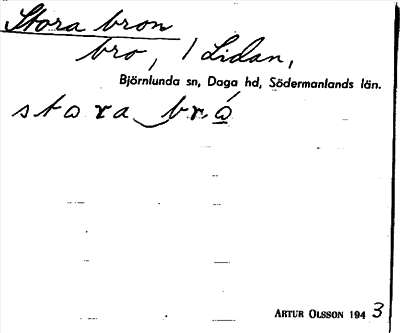 Stora bron
bro, / Lidan,
Björnlunda sn, Daga hd, Södermanlands län.
stora bró
ARTUR OLSSON 1943